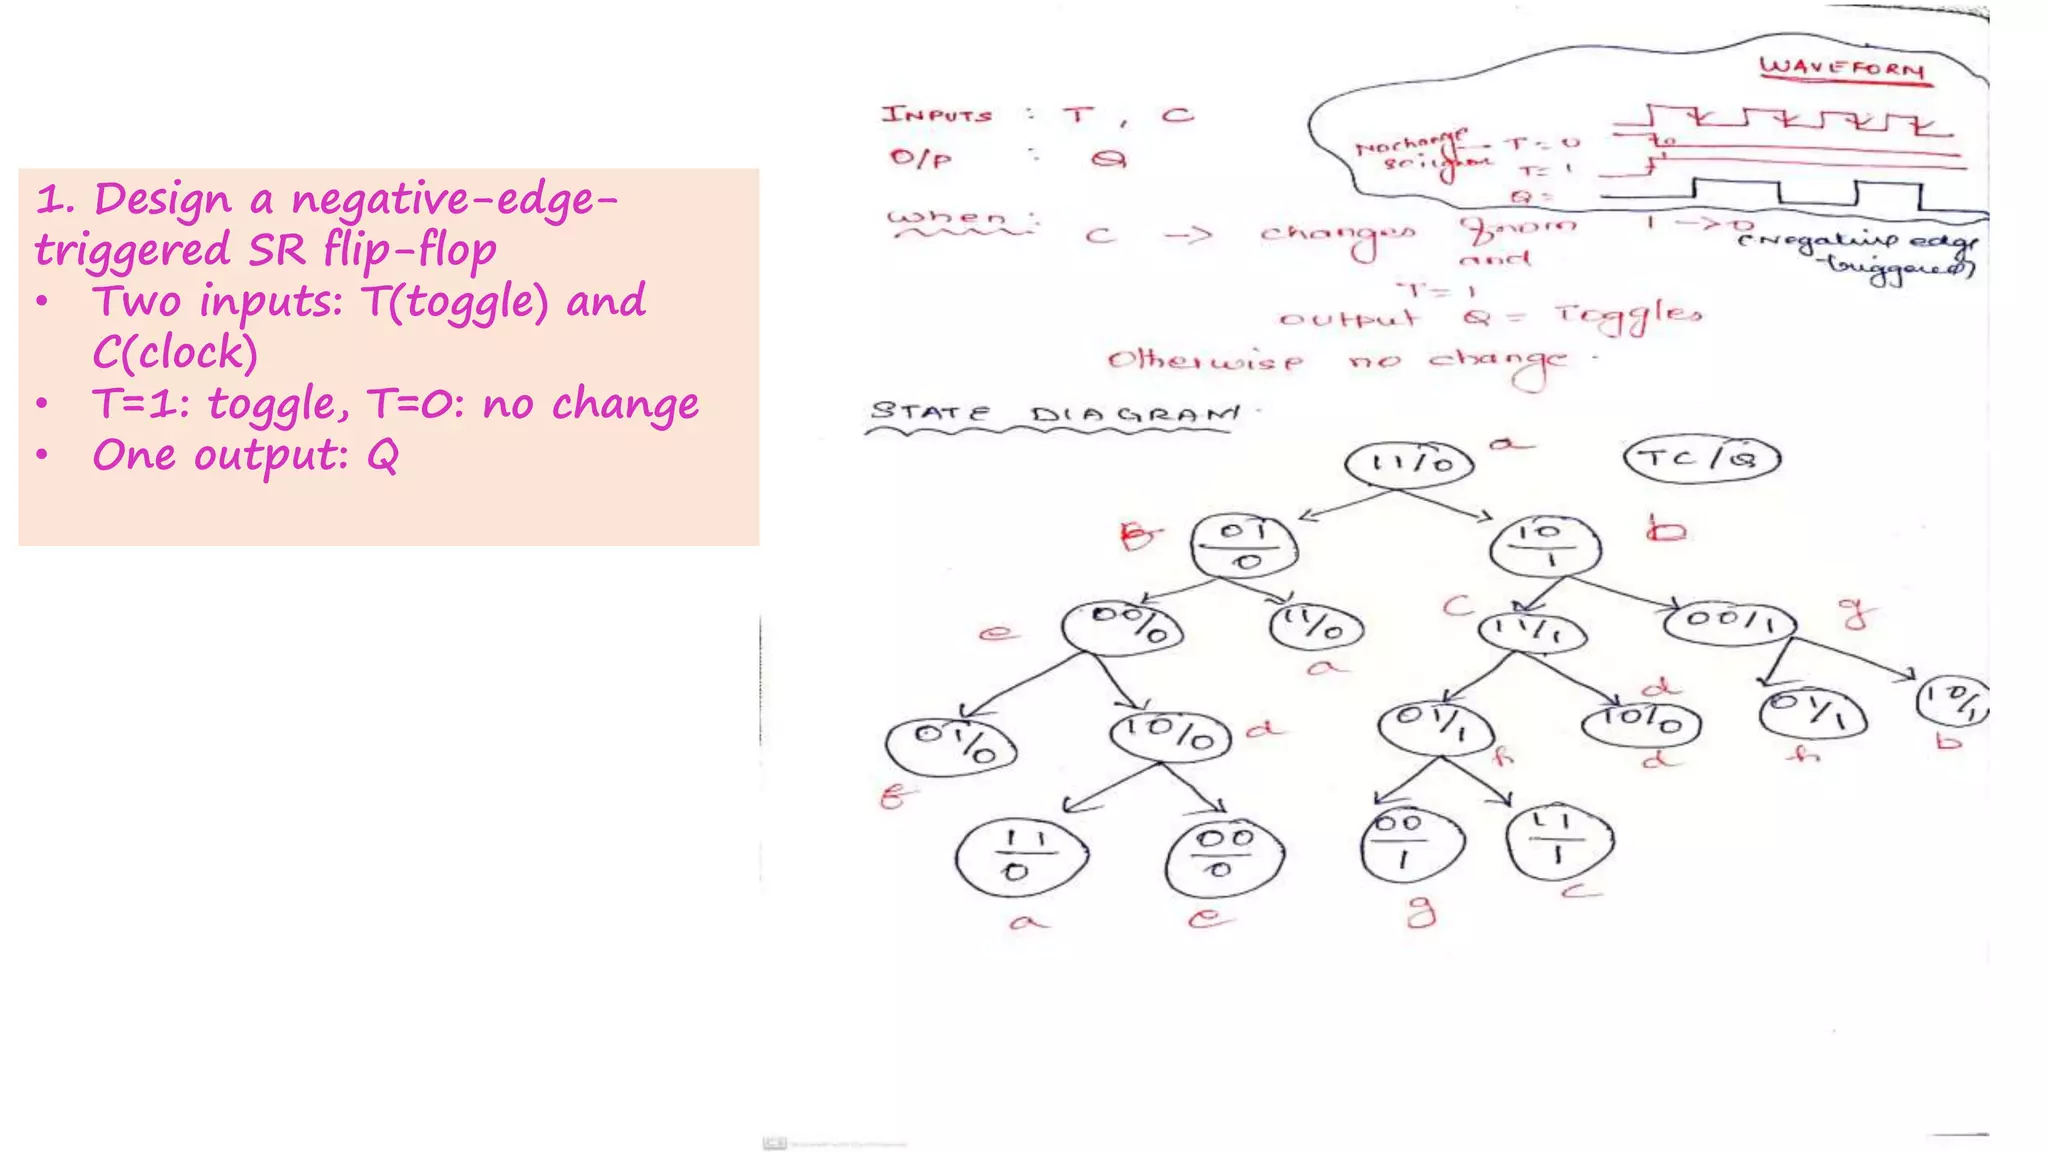 1. Design a negative-edge-
triggered SR flip-flop
• Two inputs: T(toggle) and
C(clock)
• T=1: toggle, T=0: no change
• One output: Q
WAVEFORM
INPUTS : T , C
O/P : Q
T = 0
T = 1
Q =
When:
C -> changes from 1 -> 0
(Negative edge
triggered)
and
T = 1
output Q = Toggles
Otherwise no change.
STATE DIAGRAM
11/0 a
TC/Q
01/0
10/1 b
e 00/0
11/0 a
c 11/1
00/1 g
01/0 f
10/0 d
01/1 h
d
10/0 d
01/1 h
10/1 b
11/0 a
00/0 e
00/1 g
11/1 c